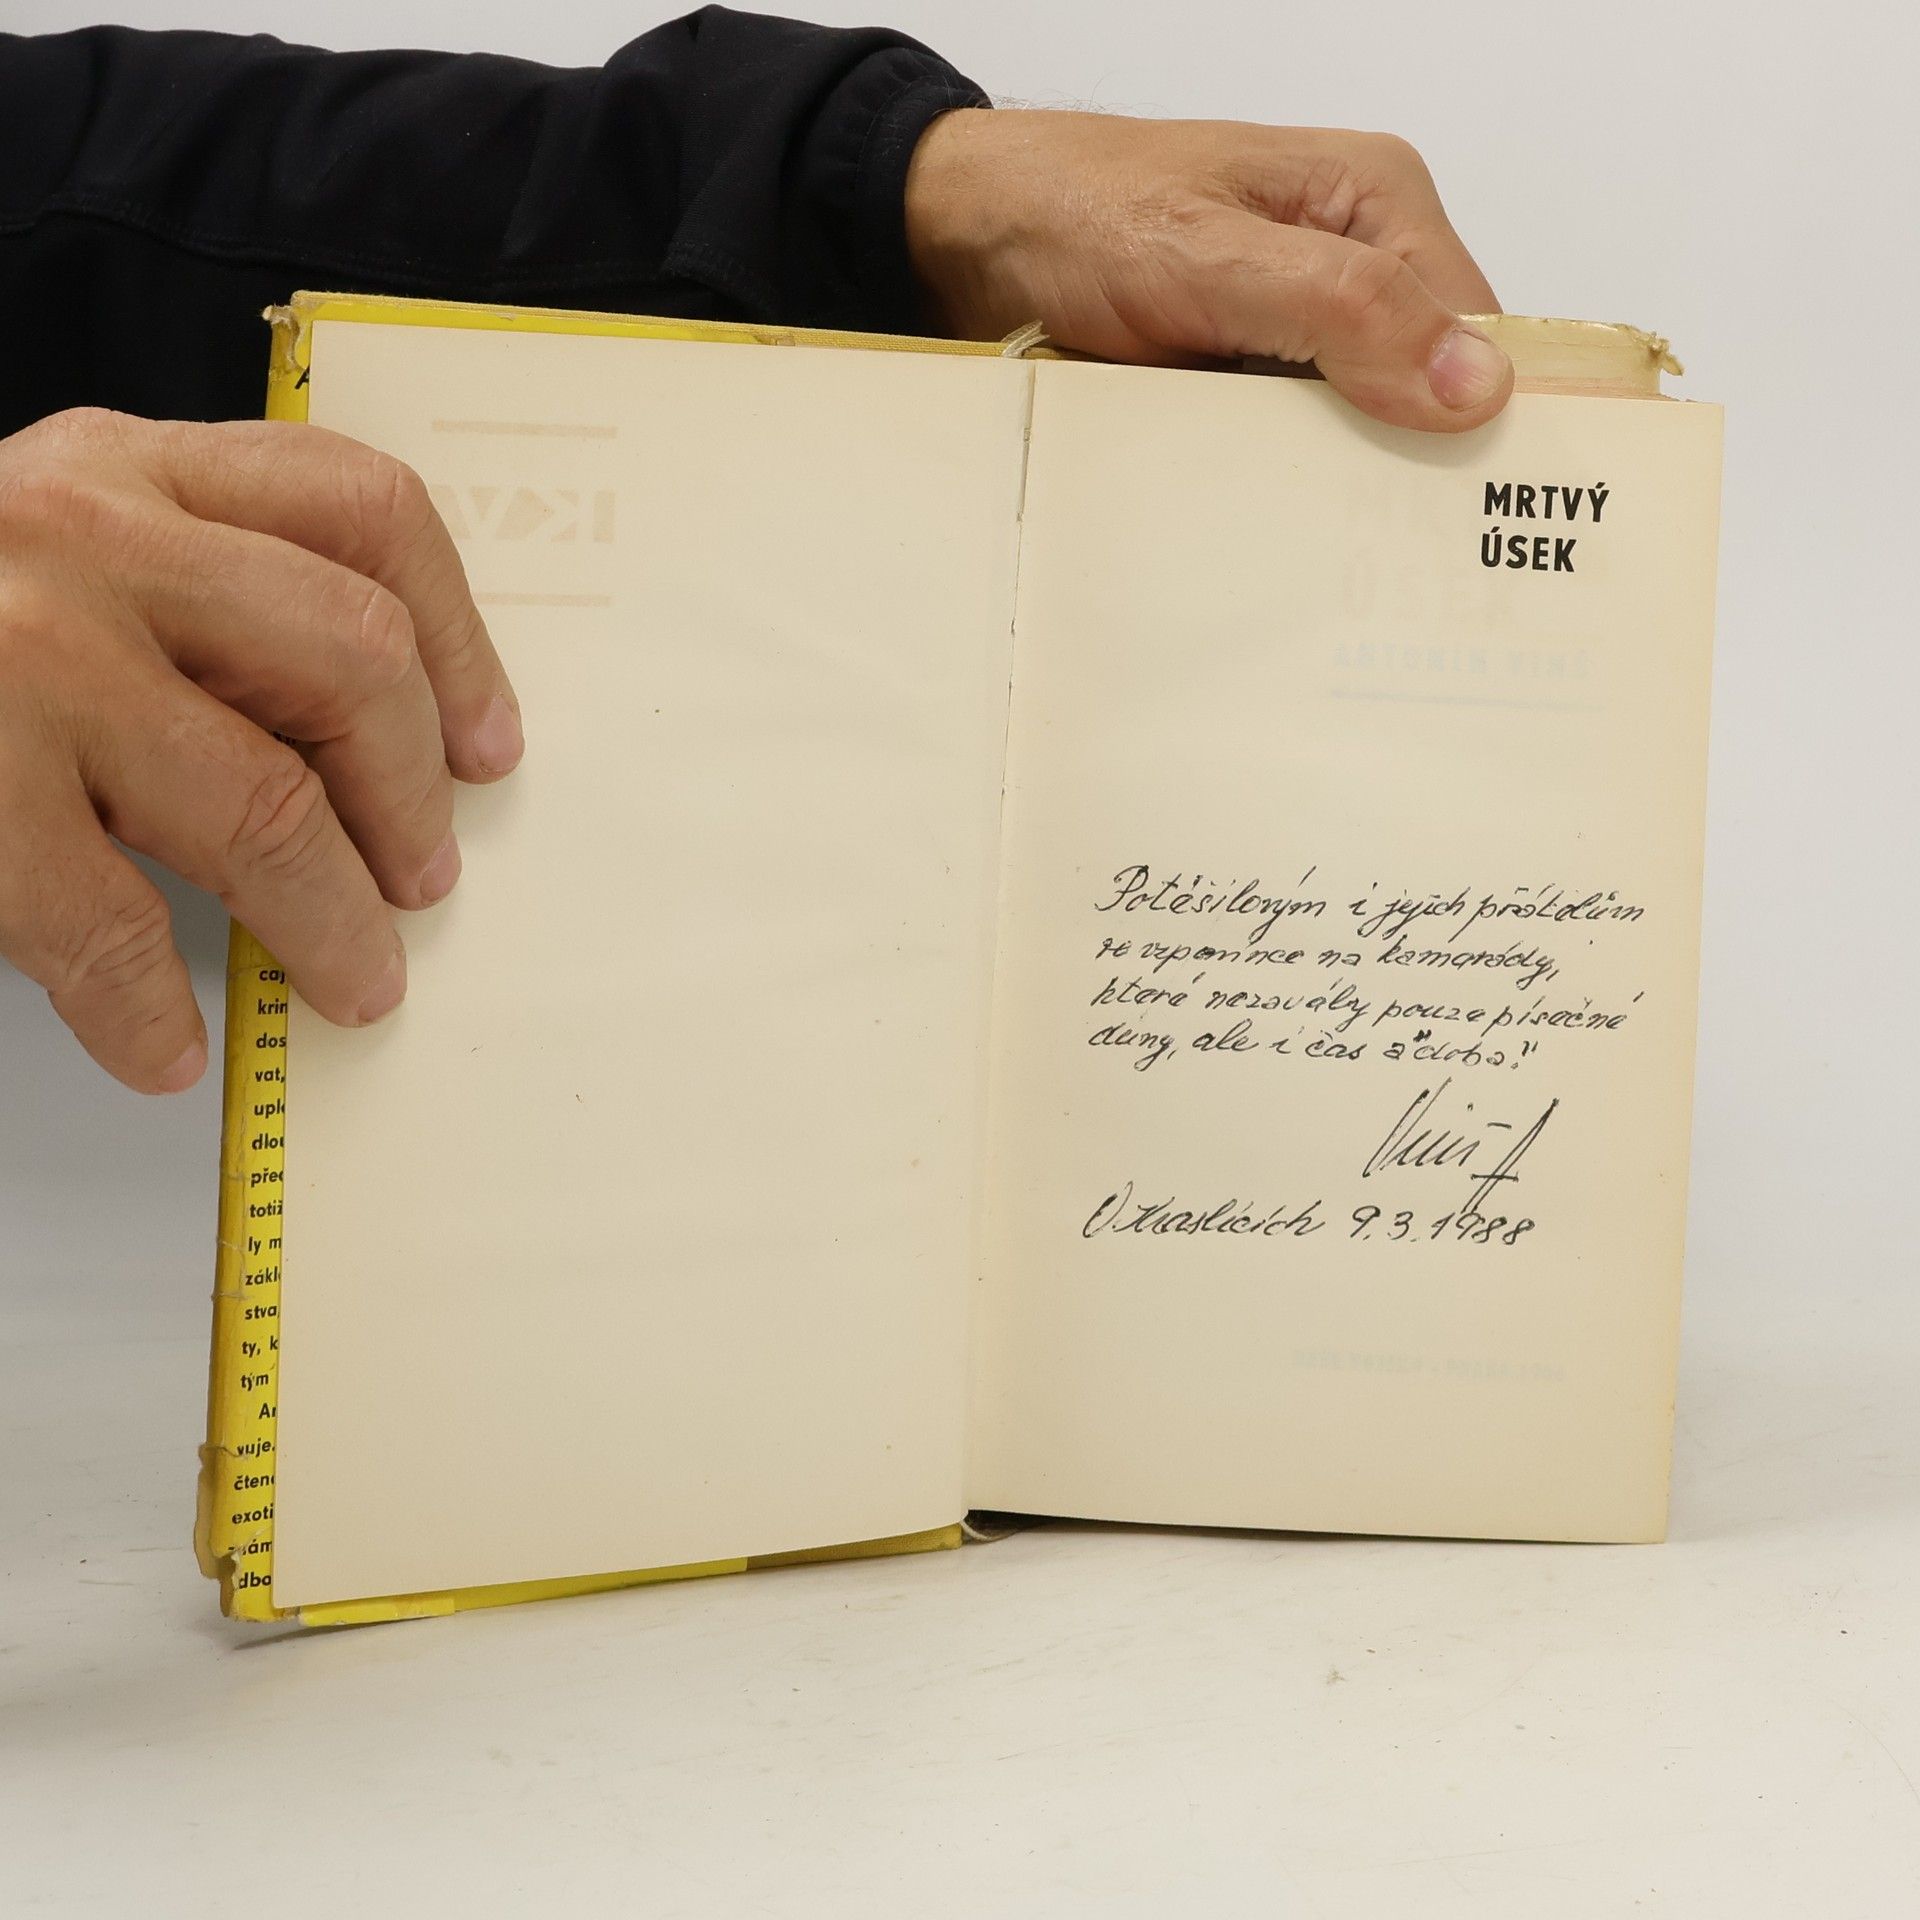 caj
krin
dos
vat,
uplo
dlou
před
totiž
ly m
zákl
stva
ty, k
tým
Ar
vuje.
čten
exoti
dba
MRTVÝ
ÚSEK
Potěšilovým i jejich přátelům
ve vzpomínce na kamarády,
které nezavály pouze písečné
duny, ale i čas a "doba!"
V Kraslicích 9.3.1988